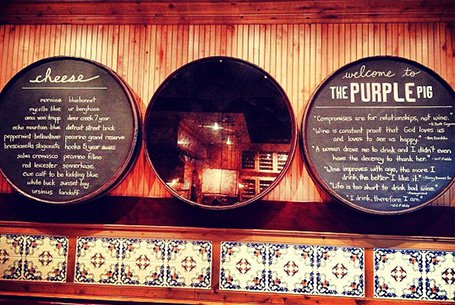 cheese
moraine bluebonnet
mycella blue ur berghaus
ana von trapp deer creek 7 year
echo mountain blue detroit street brick
peppermint belladonna pecorino grand reserve
brescianella stagionata hooks 5 year swiss
salva cremasco pecorino filino
red leicester sonnenkase
ewe calf to be kidding blue
white buck sunset bay
ursinus landaff
welcome to
THE PURPLE PIG
"Compromises are for relationships, not wine."
"Wine is constant proof that God loves us
and loves to see us happy."
"A woman drove me to drink and I didn't even
have the decency to thank her."
"Wine improves with age, the more I
drink, the better I like it."
"Life is too short to drink bad wine"
"I drink, therefore I am."